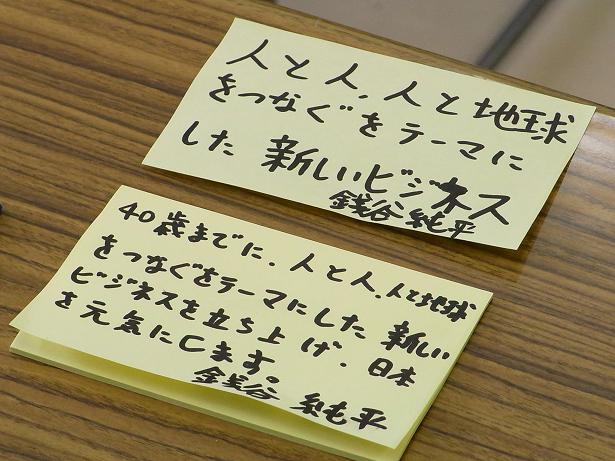 人と人、人と地球
をつなぐをテーマに
した 新しいビジネス
銭谷 純平
40歳までに、人と人、人と地球
をつなぐをテーマにした 新しい
ビジネスを立ち上げ、日本
を元気にします。
銭谷 純平